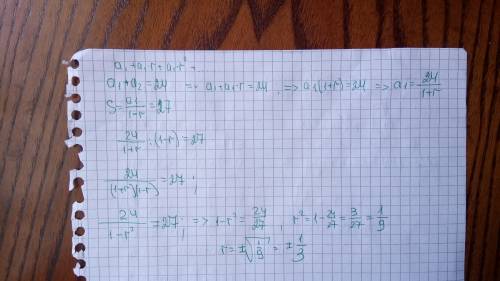 a₁+a₁r+a₁r²+..
a₁+a₂=24 => a₁+a₁r=24 ; => a₁(1+r)=24 => a₁=24/(1+r)
S=a₁/(1-r)=27
24/(1+r) : (1-r)=27
24/((1+r)(1-r))=27 ;
24/(1-r²)=27 ; => 1-r²=24/27 ; r²=1-24/27=3/27=1/9
r=±√(1/9)=±1/3